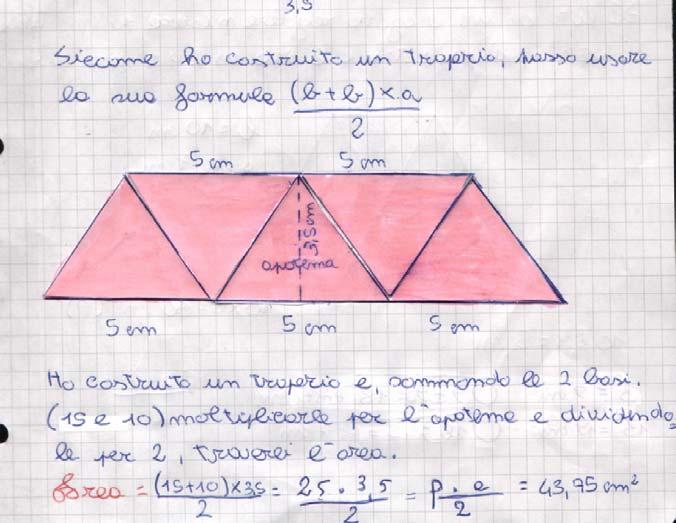 3,5
Siccome ho costruito un trapezio, posso usare
la sua formula (b+b)×a
2
5 cm 5 cm
3,5 cm
apotema
5 cm 5 cm 5 cm
Ho costruito un trapezio e, sommando le 2 basi.
(15 e 10) moltiplicarle per l'apotema e dividendo
le per 2, troverei l'area.
Area = (15+10)×35 = 25 · 3,5 = p · a = 43,75 cm²
2 2 2